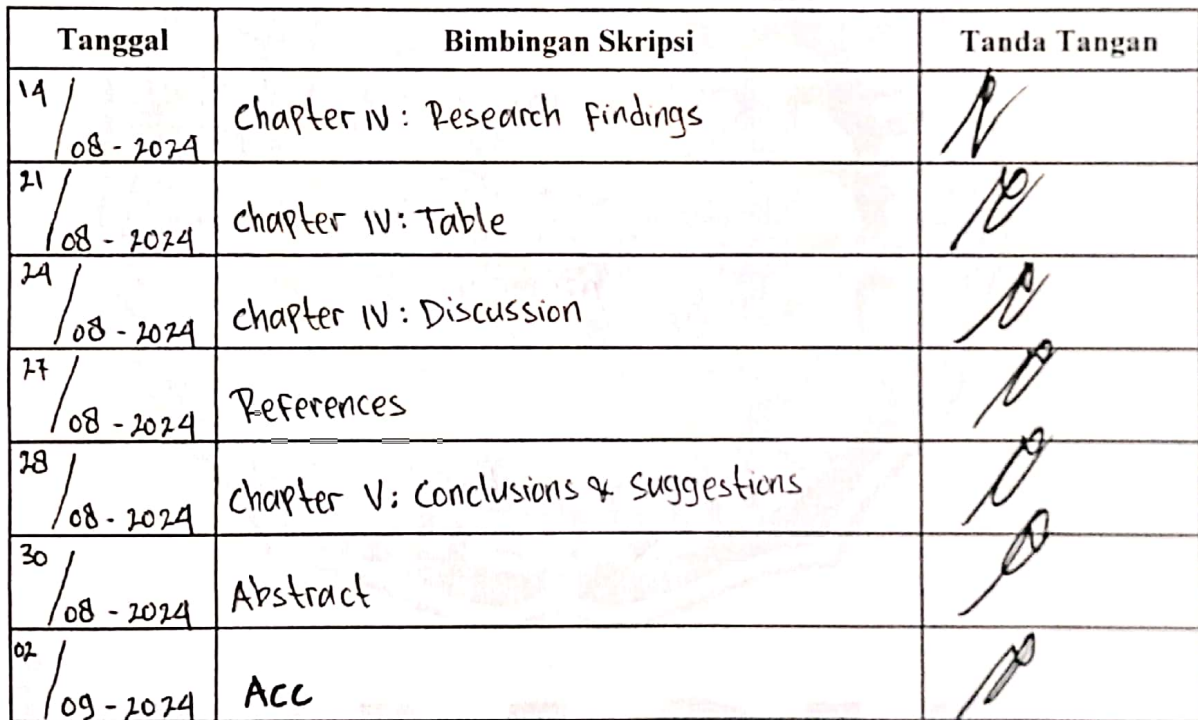 Tanggal Bimbingan Skripsi Tanda Tangan
14/08-2024 Chapter IV: Research Findings
21/08-2024 Chapter IV: Table
24/08-2024 Chapter IV: Discussion
27/08-2024 References
28/08-2024 Chapter V: Conclusions & Suggestions
30/08-2024 Abstract
02/09-2024 Acc